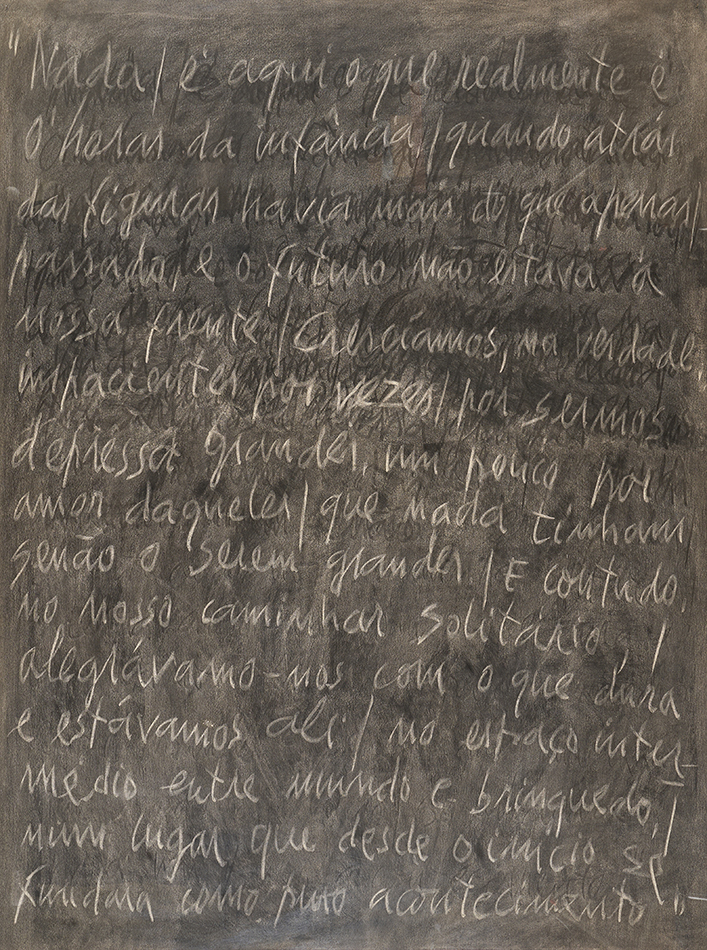 "Nada / é aqui o que realmente é.
Ó horas da infância, / quando atrás
das figuras havia mais do que apenas /
passado, e o futuro não estava à
nossa frente. / Crescíamos, na verdade,
impacientes por vezes / por sermos
depressa grandes, um pouco por
amor daqueles / que nada tinham
senão o serem grandes. / E contudo,
no nosso caminhar solitário, /
alegrávamo-nos com o que dura
e estávamos ali / no espaço inter-
médio entre mundo e brinquedo, /
num lugar que desde o início se
fundara como puro acontecimento."